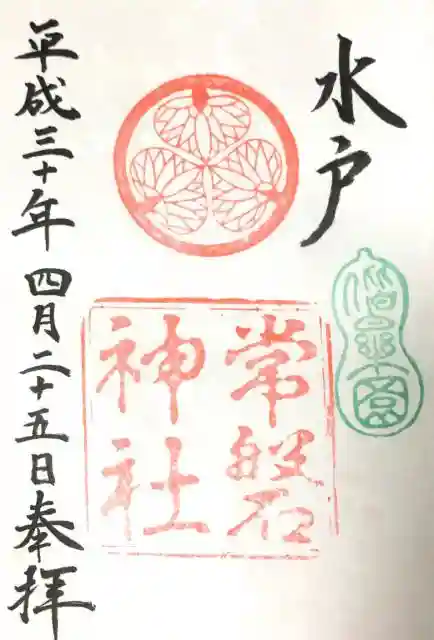 水戸
常磐
神社
平成三十年四月二十五日奉拝